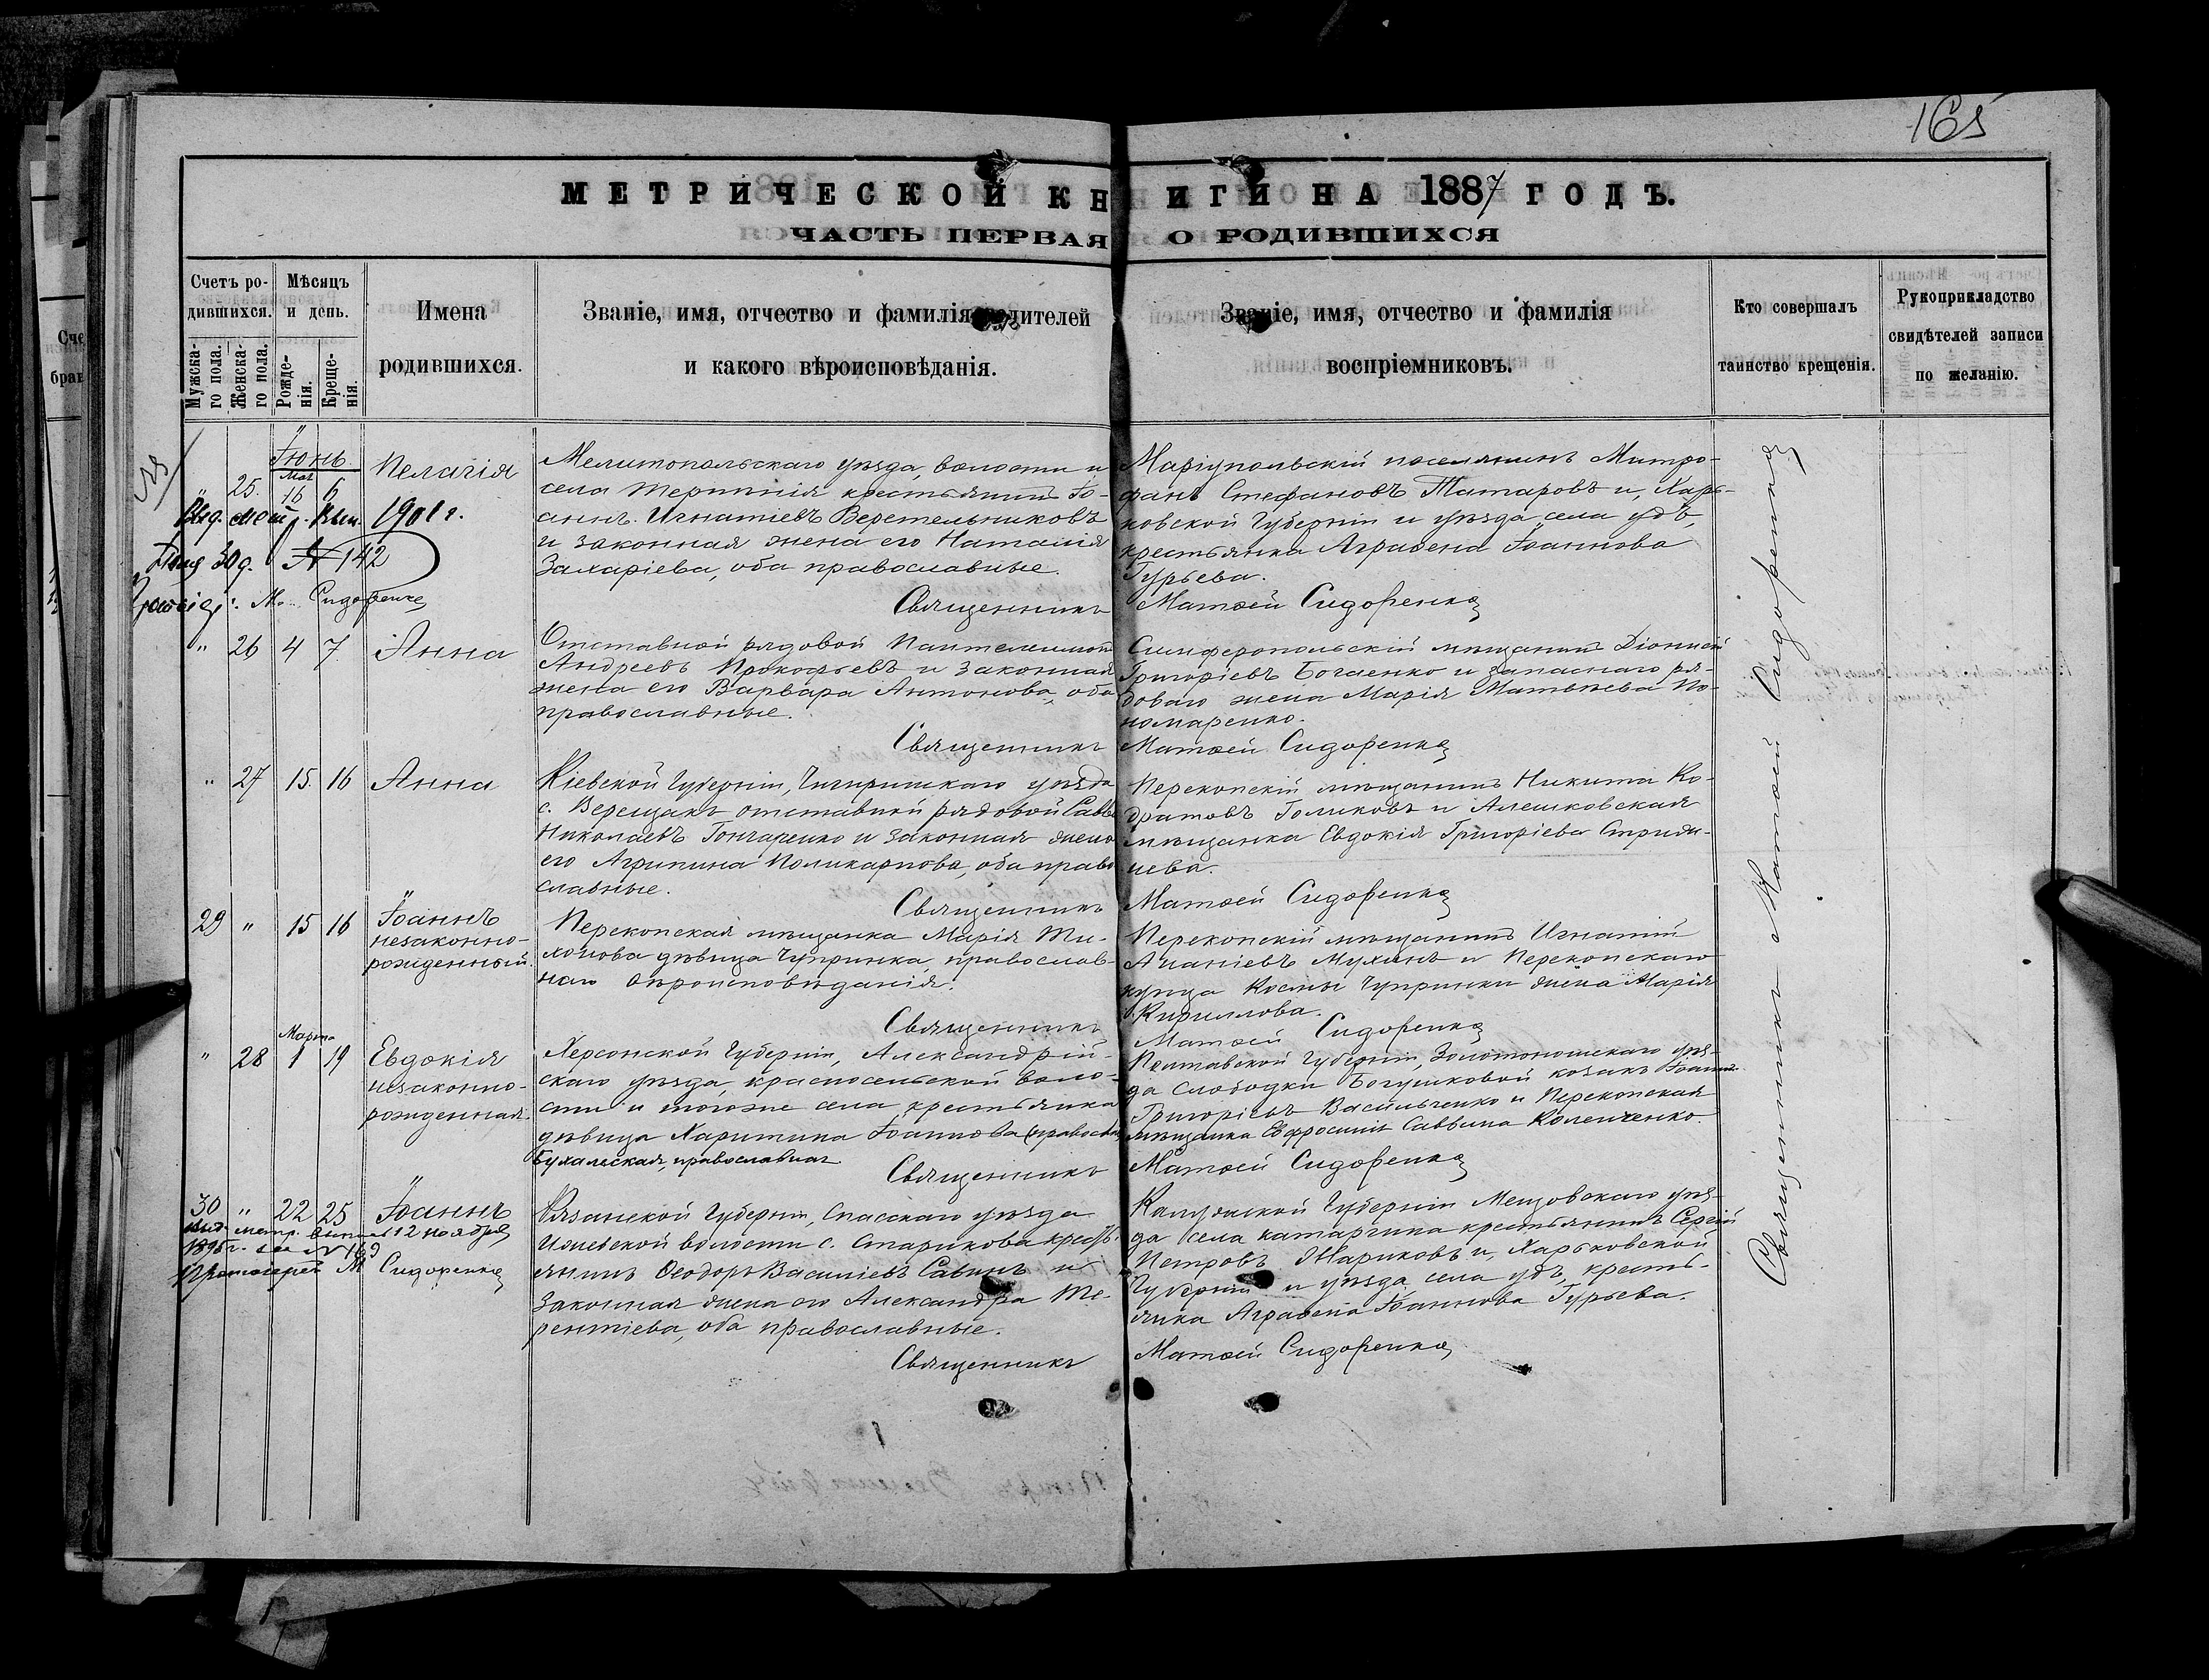 165
МЕТРИЧЕСКОЙ КНИГИ НА 1887 ГОДЪ.
ЧАСТЬ ПЕРВАЯ О РОДИВШИХСЯ
Счетъ ро-
дившихся.
Мужска-
го пола.
Женска-
го пола.
Мѣсяцъ
и день.
Рожде-
нія.
Креще-
нія.
Имена
родившихся.
Званіе, имя, отчество и фамилія родителей
и какого вѣроисповѣданія.
Званіе, имя, отчество и фамилія
воспріемниковъ.
Кто совершалъ
таинство крещенія.
Рукоприкладство
свидѣтелей записи
по желанію.
Іюнь
Мая
" 25. 16 6 Пелагія
Выд. метр. вып. 1901 г.
Іюня 30 д. № 142
М. Сидоренко
Мелитопольскаго уѣзда, волости и
села Терпѣнія крестьянинъ Іо-
аннъ Игнатіевъ Веретельниковъ
и законная жена его Наталія
Захаріева, оба православные.
Маріупольскій поселянинъ Митро-
фанъ Стефановъ Татаровъ и, Харь-
ковской Губерніи и уѣзда, села Удъ,
крестьянка Аграфена Іоаннова
Гурьева.
Священникъ Матѳей Сидоренко
" 26 4 7. Анна
Отставной рядовой Пантелеимонъ
Андреевъ Прокофьевъ и законная
жена его Варвара Антонова, оба
православные.
Симферопольскій мѣщанинъ Діонисій
Григоріевъ Богаенко и запаснаго ря-
доваго жена Марія Матвѣева По-
номаренко.
Священникъ Матѳей Сидоренко
" 27 15. 16 Анна
Кіевской Губерніи, Чигиринскаго уѣзда
с. Верещакъ отставной рядовой Савва
Николаевъ Гончаренко и законная жена
его Агрипина Поликарпова, оба право
славные.
Перекопскій мѣщанинъ Никита Ко-
дратовъ Голиковъ и Алешковская
мѣщанка Евдокія Григоріева
Священникъ Матѳей Сидоренко
29 " 15 16 Іоаннъ
незаконно-
рожденный.
Перекопская мѣщанка Марія Ти-
хонова дѣвица Чупринка, православ-
наго вѣроисповѣданія.
Перекопскій мѣщанинъ Игнатій
Ананіевъ Мухинъ и Перекопскаго
купца Космы Чупринки жена Марія
Кириллова.
Священникъ Матѳей Сидоренко
Марта
" 28 1 19 Евдокія
незаконно-
рожденная.
Херсонской Губерніи, Александрій-
скаго уѣзда, красносельской воло-
сти и тогоже села, крестьянка
дѣвица Харитина Іоаннова (православ
Бухальская, православная.
Полтавской Губерніи, Золотоношскаго уѣз-
да Слободки Богушковой козакъ Іоаннъ
Григоріевъ Васильченко и Перекопская
мѣщанка Евфросинія Саввина Коленченко.
Священникъ Матѳей Сидоренко
30 " 22 25 Іоаннъ
Выд. метр. выпись 12 ноября
1895 г. за № 169
Протоіерей М Сидоренко
Рязанской Губерніи, Спасскаго уѣзда
Ижевской волости с. Старикова кресть-
янинъ Ѳеодоръ Василіевъ Савинъ и
Законная жена его Александра Те-
рентіева, оба православные.
Калужской Губерніи Мещовскаго уѣз-
да села катаргина крестьянинъ Сергій
Петровъ Жариковъ и, Харьковской
Губерніи и уѣзда, села Удъ, кресть-
янка Аграфена Іоаннова Гурьева.
Священникъ Матѳей Сидоренко
Священникъ Матѳей Сидоренко